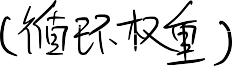 (循环权重)